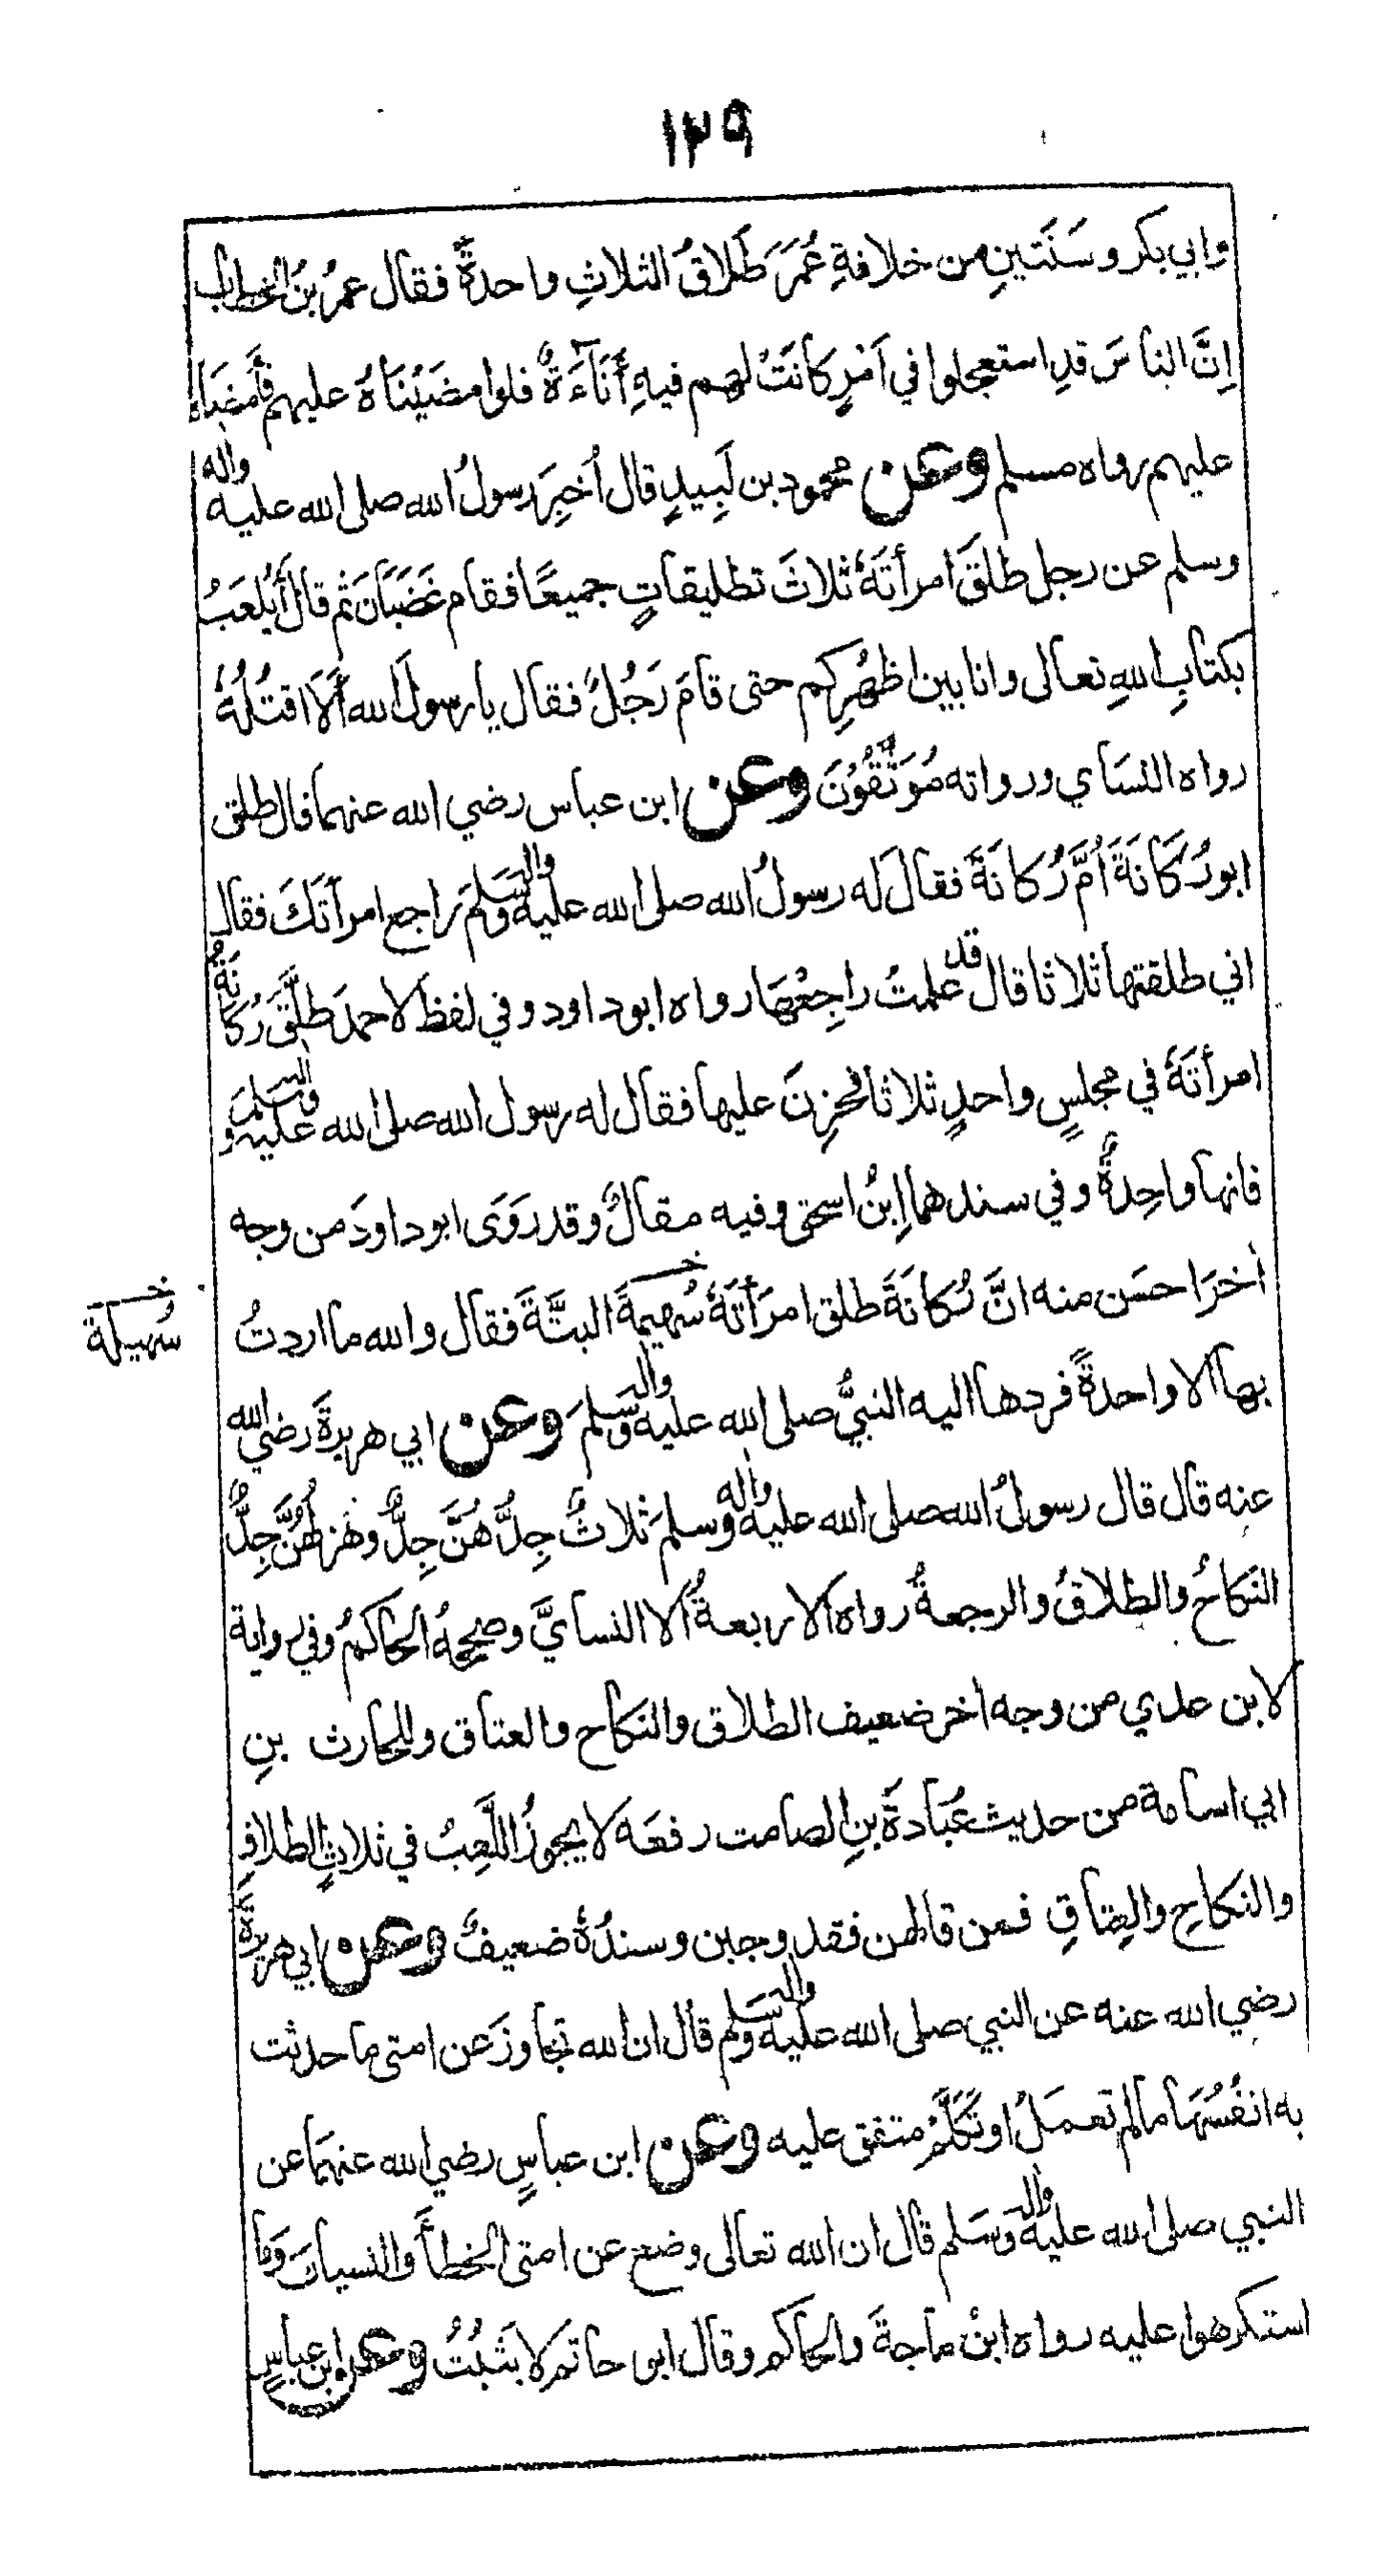 ١٢٩
وابي بكر وسَنَتَينِ من خلافةِ عُمَرَ طَلَاقُ الثلاثِ واحدةً فقال عمرُ بنُ الخطاب
اِنَّ الناسَ قدِ استعجلوا في اَمْرٍ كَانَتْ لهم فيهِ أَنَاءَةٌ فلوا مضَيْنَاهُ عليهم فَأمضَاه
عليهم رواه مسلم وعن محمود بن لَبِيدٍ قال اُخبِرَ رسولُ الله صلى الله عليه واله
وسلم عن رجل طلقَ امرأتَهُ ثلاثَ تطليقاتٍ جميعًا فقام غَضَبَانَ ثم قال أَيُلعَبُ
بكتابِ اللهِ تعالى وانا بين اظهُرِكم حتى قامَ رَجُلٌ فقال يا رسولَ الله ألَا اقتُلُهُ
رواه النسَاي ورواته مُوَثَّقُوْنَ وعن ابن عباس رضي الله عنهما قال طلق
ابو رُكَانَةَ اُمَّ رُكانَةَ فقال له رسولُ الله صلى الله عليه واله وسَلمَ راجع امرأتَكَ فقال
اني طلقتها ثلاثا قال قد علمتُ راجِعْهَا رواه ابو داود وفي لفظ لاحمدَ طلَّقَ رُكَانَةُ
امرأتَهُ في مجلسٍ واحدٍ ثلاثا فحزِنَ عليها فقال له رسول الله صلى الله عليه واله وسلم
فانها واحِدةٌ وفي سندهما اِبنُ اسحق وفيه مقالٌ وقد رَوَى ابو داودَ من وجه
اٰخرَ احسَن منه انَّ رُكانَةَ طلق امرَأتَهُ سُهيمةَ البتَّةَ فقال والله ما اردتُ
سُهيلة
بها الا واحدةً فردها اليه النبيُّ صلى الله عليه واله وسلمَ وعن ابي هريرةَ رضي الله
عنه قال قال رسولُ الله صلى الله عليه واله وسلمَ ثلاثٌ جِدُّ هُنَّ جِدٌّ وهَزلُهُنَّ جِدٌّ
النكاحُ والطلاقُ والرجعةُ رواه الاربعةُ الا النسايَّ وصححهُ الحاكمُ وفي رواية
لابن عدي من وجه اٰخر ضعيف الطلاق والنكاح والعتاق وللحارث بنِ
ابي اسامة من حديث عُبَادةَ بنِ الصامت رفعَه لا يجوزُ اللَّعِبُ في ثلاثٍ الطلاقِ
والنكاحِ والعِتاقِ فمن قالهن فقد وجبن وسندُهُ ضعيفٌ وعن ابي هريرةَ
رضي الله عنه عن النبي صلى الله عليه واله وسَلم قال ان الله تجاوزَ عن امتى ما حدثت
به انفُسُهَا مالم تعمَلْ او تَكَلَّمْ متفق عليه وعن ابن عباسٍ رضي الله عنهمَا عن
النبي صلى الله عليه واله وسَلم قال ان الله تعالى وضع عن امتى الخطأَ والنسيانَ وَما
استكرهوا عليه رواه ابنُ ماجةَ والحاكم وقال ابو حاتم لا يَثبُتُ وعن ابنِ عباسٍ